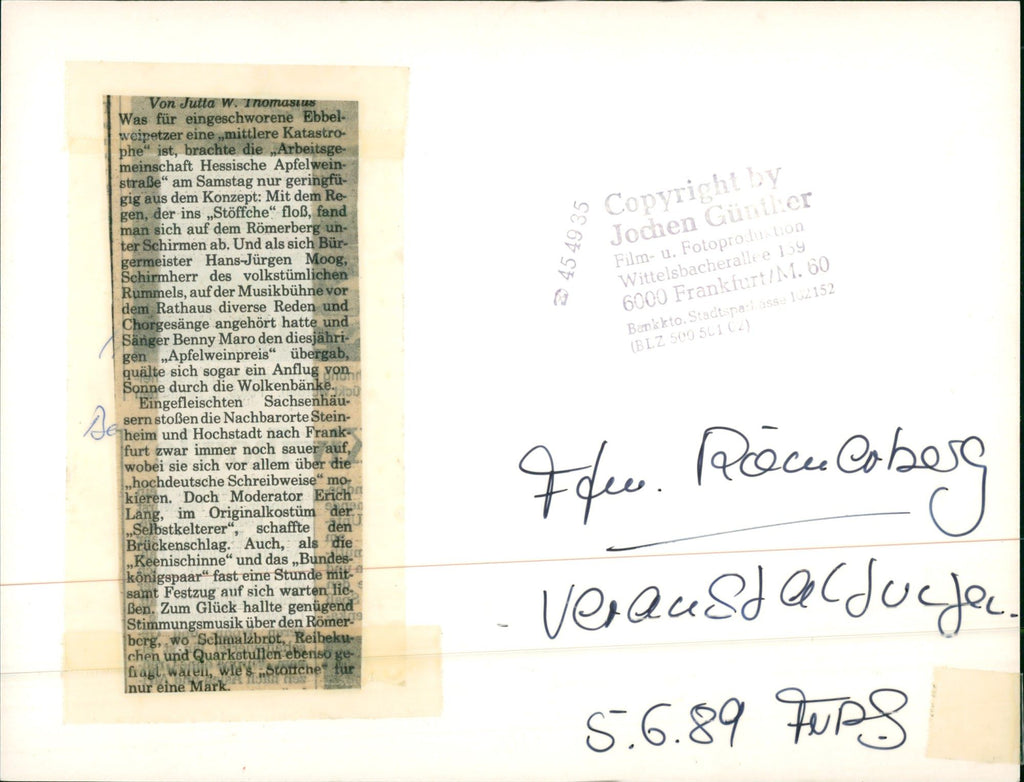 Von Jutta W. Thomasius
Was für eingeschworene Ebbel-
weipetzer eine „mittlere Katastro-
phe“ ist, brachte die „Arbeitsge-
meinschaft Hessische Apfelwein-
straße“ am Samstag nur geringfü-
gig aus dem Konzept: Mit dem Re-
gen, der ins „Stöffche“ floß, fand
man sich auf dem Römerberg un-
ter Schirmen ab. Und als sich Bür-
germeister Hans-Jürgen Moog,
Schirmherr des volkstümlichen
Rummels, auf der Musikbühne vor
dem Rathaus diverse Reden und
Chorgesänge angehört hatte und
Sänger Benny Maro den diesjähri-
gen „Apfelweinpreis“ übergab,
quälte sich sogar ein Anflug von
Sonne durch die Wolkenbänke.
Eingefleischten Sachsenhäu-
sern stoßen die Nachbarorte Stein-
heim und Hochstadt nach Frank-
furt zwar immer noch sauer auf,
wobei sie sich vor allem über die
„hochdeutsche Schreibweise“ mo-
kieren. Doch Moderator Erich
Lang, im Originalkostüm der
„Selbstkelterer“, schaffte den
Brückenschlag. Auch, als die
„Keenischinne“ und das „Bundes-
königspaar“ fast eine Stunde mit-
samt Festzug auf sich warten lie-
ßen. Zum Glück hallte genügend
Stimmungsmusik über den Römer-
berg, wo Schmalzbrot, Reibeku-
chen und Quarkstullen ebenso ge-
fragt waren, wie's „Stöffche“ für
nur eine Mark.
Copyright by
Jochen Günther
Film- u. Fotoproduktion
Wittelsbacherallee 159
6000 Frankfurt/M. 60
Bankkto. Stadtsparkasse
(BLZ 500 501 02)
☎ 454935
Ffm. Römerberg
Veranstaltungen.
5.6.89